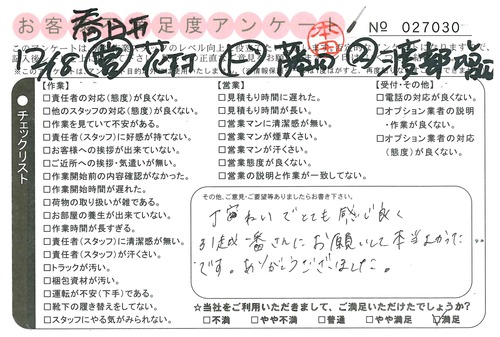 お客様満足度アンケート
№ 027030
12/18 営 花村
チェックリスト
【作業】
□責任者の対応(態度)が良くない。
□他のスタッフの対応(態度)が良くない。
□作業を見ていて不安がある。
□責任者(スタッフ)に好感が持てない。
□お客様への挨拶が出来ていない。
□ご近所への挨拶・気遣いが無い。
□作業開始前の内容確認がなかった。
□作業開始時間が遅れた。
□荷物の取り扱いが雑である。
□お部屋の養生が出来ていない。
□作業時間が長すぎる。
□責任者(スタッフ)に清潔感が無い。
□責任者(スタッフ)が汗くさい。
□トラックが汚い。
□梱包資材が汚い。
□運転が不安(下手)である。
□靴下の履き替えをしてない。
□スタッフにやる気がみられない。
【営業】
□見積もり時間に遅れた。
□見積もり時間が長い。
□営業マンに清潔感が無い。
□営業マンが煙草くさい。
□営業マンが汗くさい。
□営業態度が良くない。
□営業の説明と作業が一致してない。
【受付・その他】
□電話の対応が良くない。
□オプション業者の説明
・作業が良くない。
□オプション業者の対応
(態度)が良くない。
その他、ご意見・ご要望等ありましたらお書き下さい。
丁寧ねいでとても感じ良く
引越一番さんにお願いして本当よかった
です。ありがとうございました。
☆当社をご利用いただきまして、ご満足いただけたでしょうか?
□不満 □やや不満 □普通 □やや満足 ☑満足